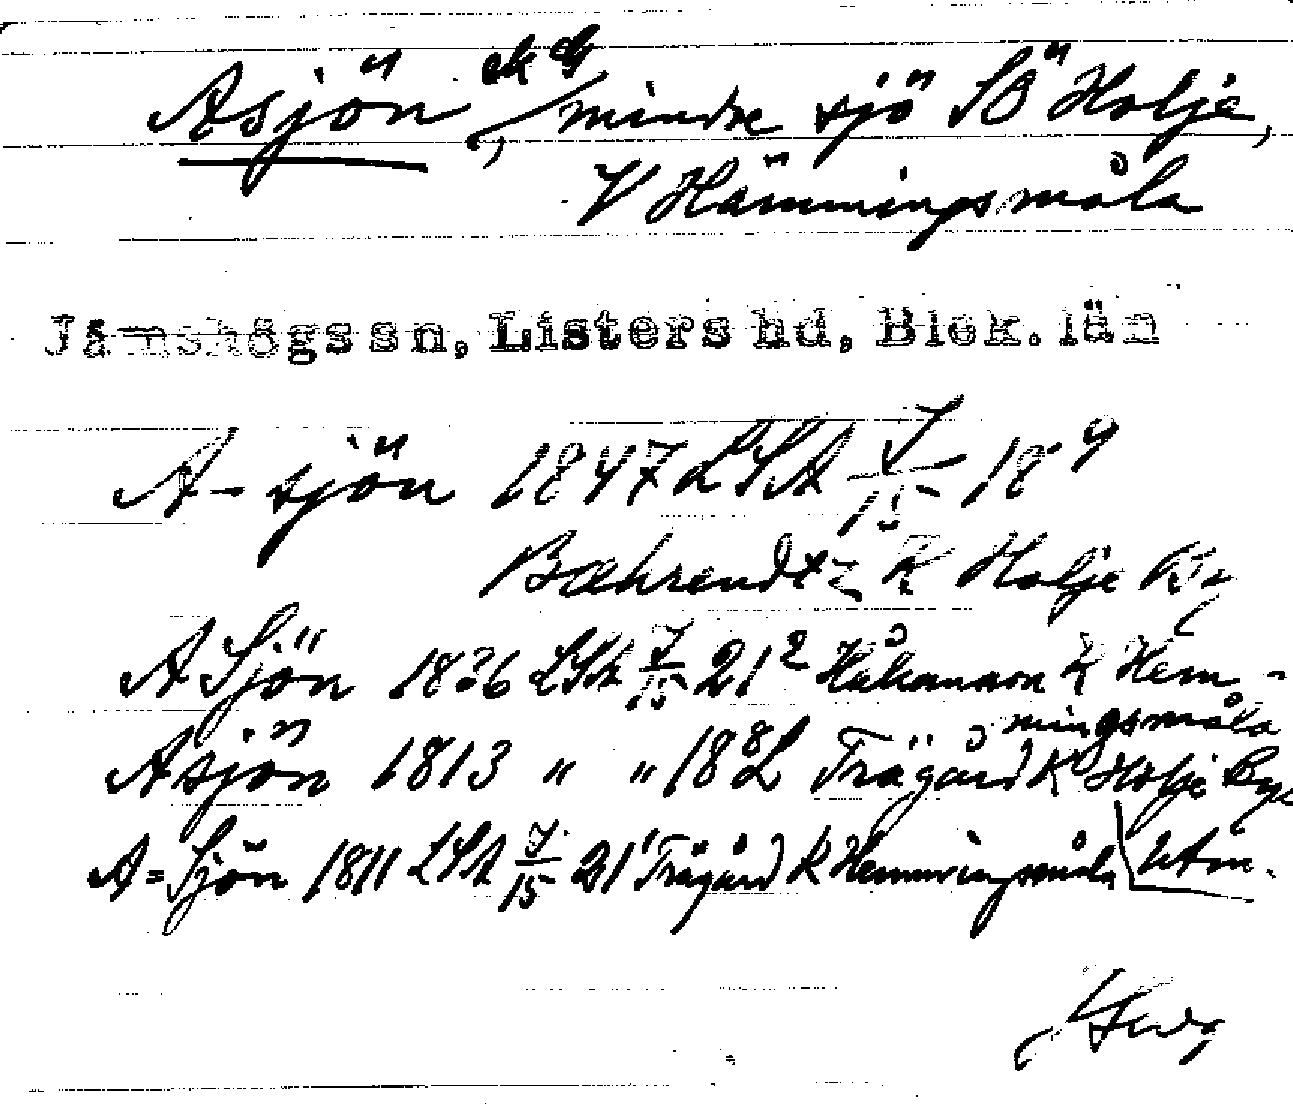 Asjön, ek G mindre sjö SÖ Holje,
V Hämningsmåla
Jämshögs sn, Listers hd, Blek. län
A-sjön 1847 LSA J/15 18⁹
Bæhrendtz K Holje By
A Sjön 1836 LSA J/15 21² Håkanson K Hem-
mingsmåla
Asjön 1813 " " 18⁸ L Trägård K Holje Bys
A=Sjön 1811 LSA J/15 21¹ Trägård K Hemmingsmåla Utm.